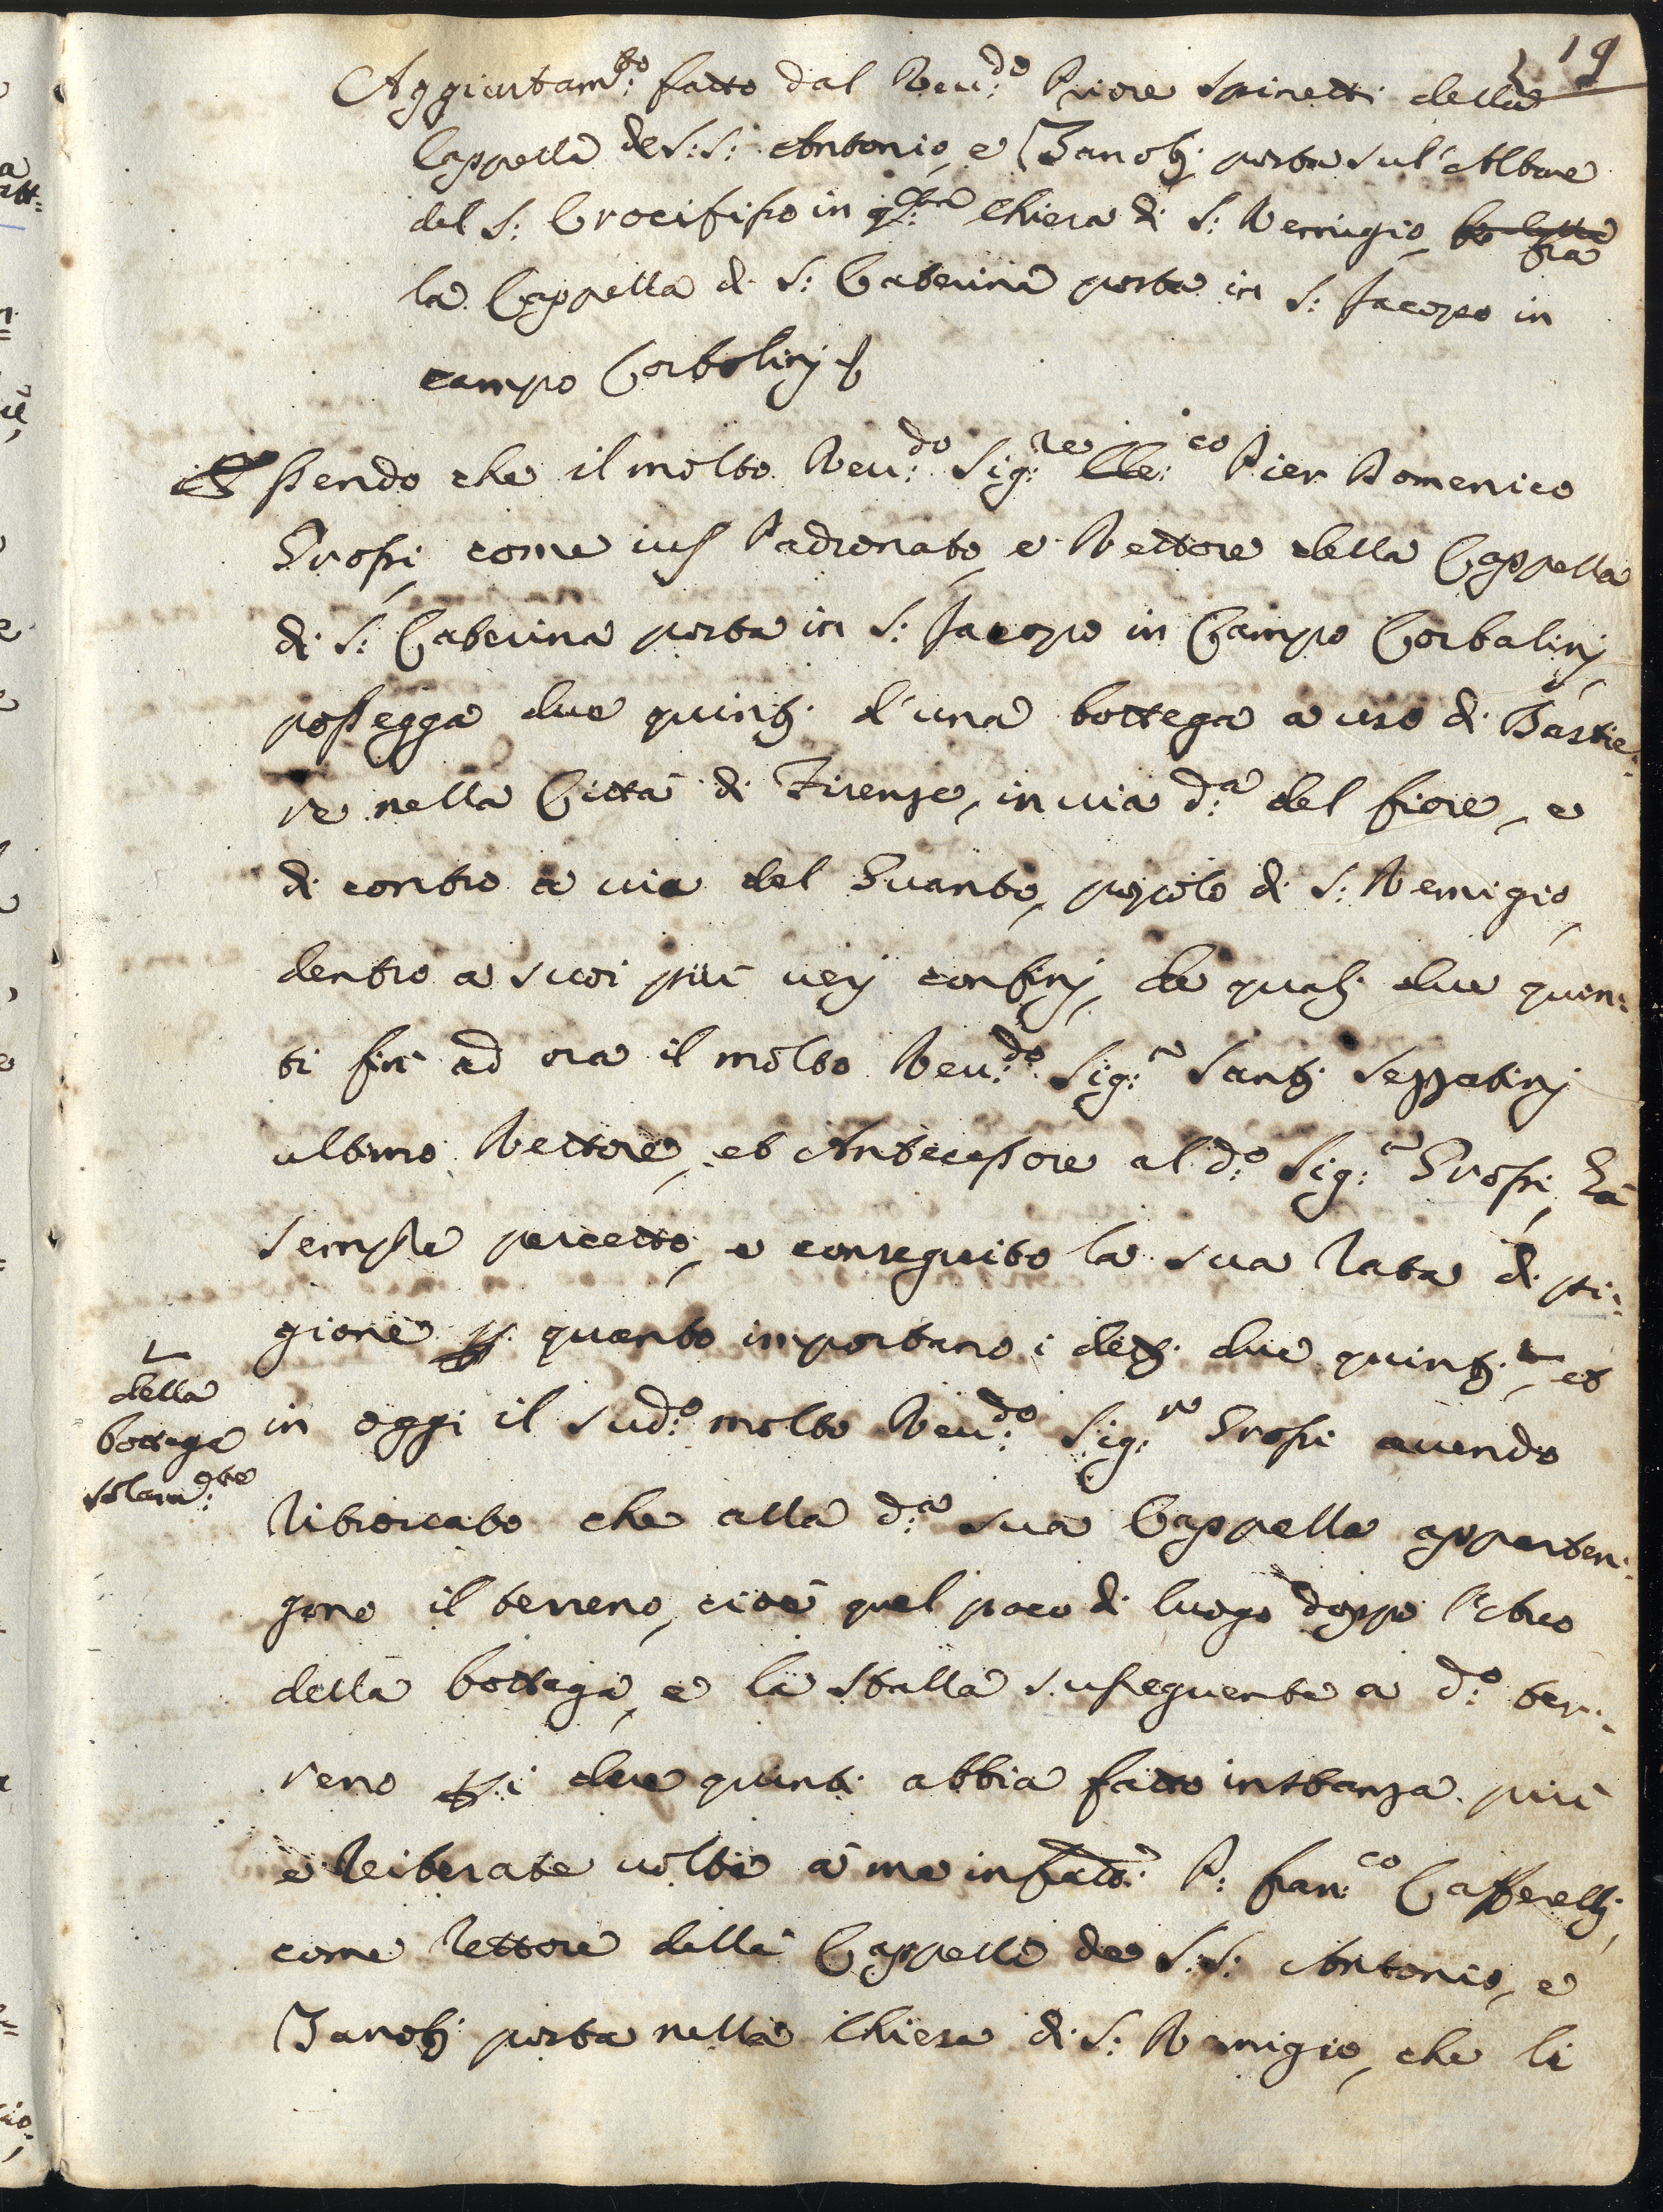 19
Aggiustam:to fatto dal Reu:do Priore Spinetti della
Cappella de S:S: Antonio, e Zanobi posta sul'Altare
del S: Crocifisso in q:sta Chiesa di S: Remigio, fra
la Cappella di S: Caterina posta in S: Jacopo in
campo Corbolinj
Essendo che il molto Reu:do Sig:re Pier Domenico
Grossi, come ius Padronato, e Rettore della Cappella
di S: Caterina posta in S: Jacopo in Campo Corbalinj,
possegga due quinti d'una bottega a uso di Bastie:
re nella Città di Firenze, in uia d:a del fiore, e
di contro a uia del Guanto, popolo di S: Remigio,
dentro a suoi più uerj confinj, de quali due quin:
ti fin ad ora il molto Reu:do Sig:r Santi Sezzatinj
ultimo Rettore, et Antecessore al d:o Sig:r Grossi, hà
sempre percetto, e conseguito la sua rata di pi:
gione p quanto importano i detti due quinti, et
della
bottega
solam:te
in oggi il sud:o molto Reu:do Sig:re Grossi auendo
ritrouato che alla d:a sua Cappella apparten:
gono il terreno, cioè quel poco di luogo doppo l'Arco
della bottega, e la stalla susseguente a d:o ter:
reno p i due quinti abbia fatto instanza più
e reiterate uolte à me infratto: P: Fran:co Cafferelli,
come rettore della Cappella de S:S: Antonio, e
Zanobi posta nella Chiesa di S: Remigio, che li